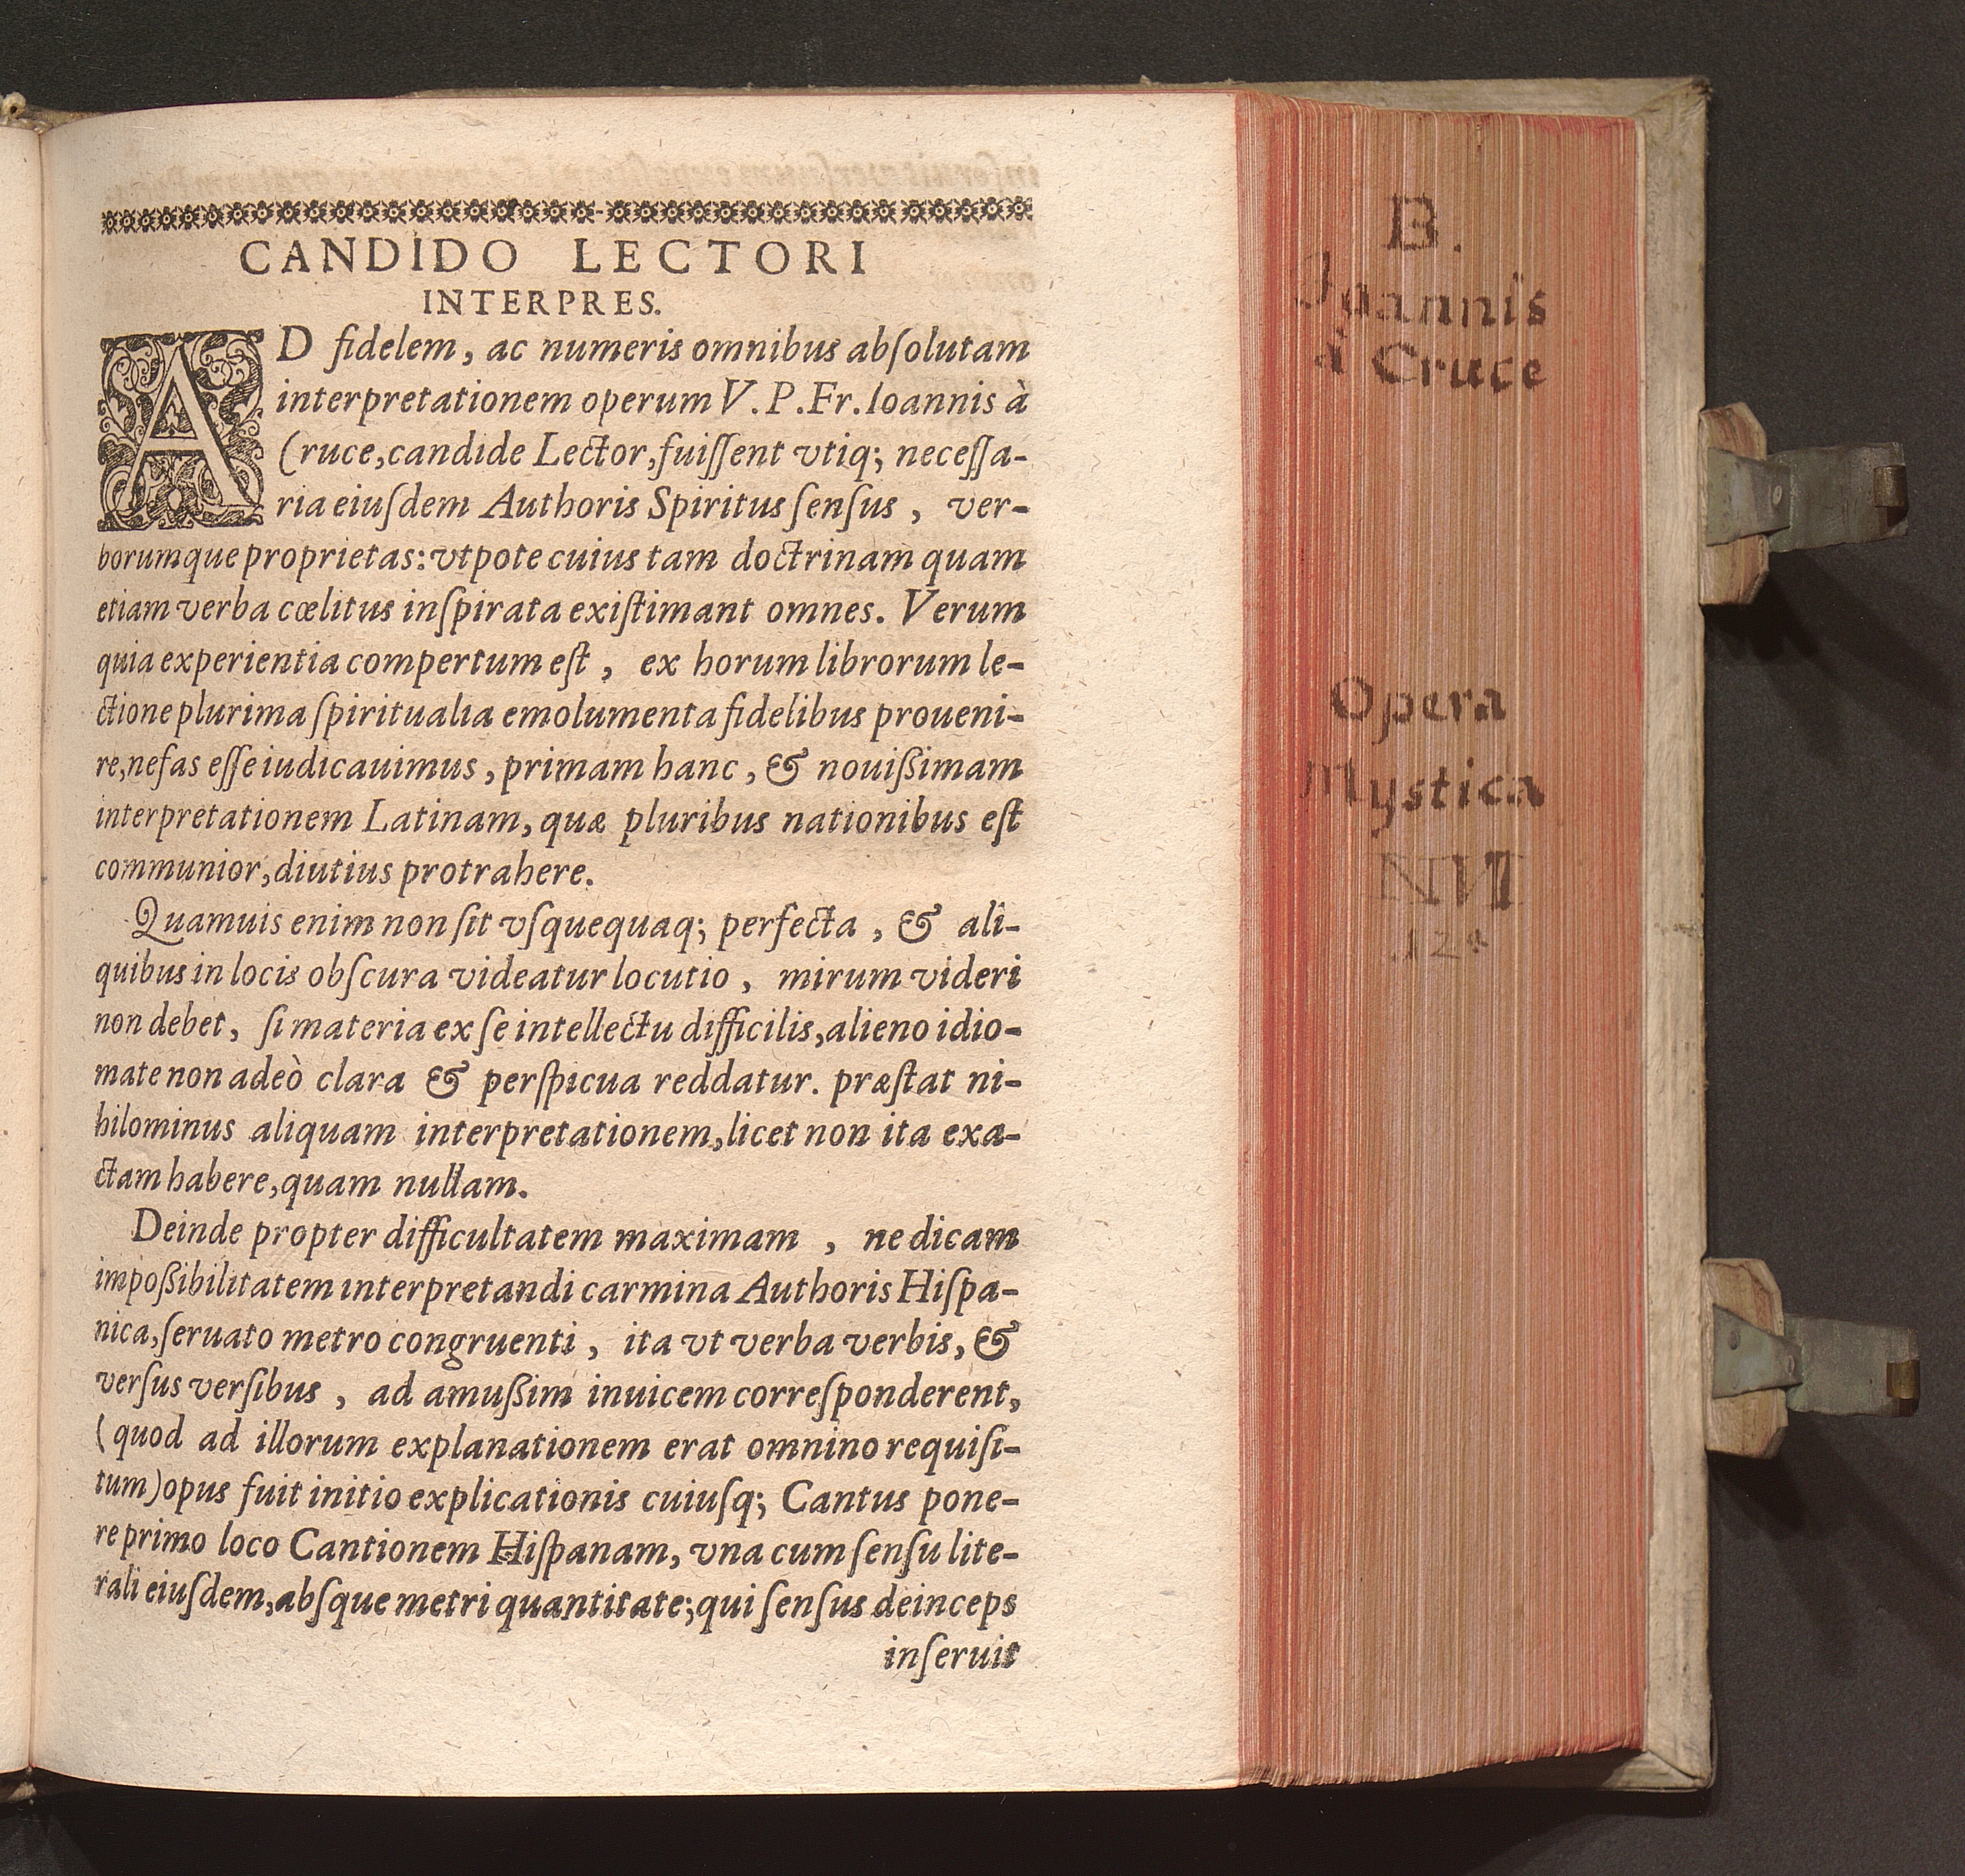 CANDIDO LECTORI
INTERPRES.
AD fidelem, ac numeris omnibus abſolutam
interpretationem operum V. P. Fr. Ioannis à
Cruce, candide Lector, fuiſſent vtiq; neceſſa-
ria eiuſdem Authoris Spiritus ſenſus, ver-
borumque proprietas: vtpote cuius tam doctrinam quam
etiam verba cœlitus inſpirata exiſtimant omnes. Verum
quia experientia compertum eſt, ex horum librorum le-
ctione plurima ſpiritualia emolumenta fidelibus proueni-
re, nefas eſſe iudicauimus, primam hanc, & nouißimam
interpretationem Latinam, quæ pluribus nationibus eſt
communior, diutius protrahere.
Quamuis enim non ſit vſquequaq; perfecta, & ali-
quibus in locis obſcura videatur locutio, mirum videri
non debet, ſi materia ex ſe intellectu difficilis, alieno idio-
mate non adeò clara & perſpicua reddatur. præſtat ni-
hilominus aliquam interpretationem, licet non ita exa-
ctam habere, quam nullam.
Deinde propter difficultatem maximam, ne dicam
impoßibilitatem interpretandi carmina Authoris Hiſpa-
nica, ſeruato metro congruenti, ita vt verba verbis, &
verſus verſibus, ad amußim inuicem correſponderent,
(quod ad illorum explanationem erat omnino requiſi-
tum) opus fuit initio explicationis cuiuſq; Cantus pone-
re primo loco Cantionem Hiſpanam, vna cum ſenſu lite-
rali eiuſdem, abſque metri quantitate; qui ſenſus deinceps
inſeruit
B.
Joannis
à Cruce
Opera
Mystica